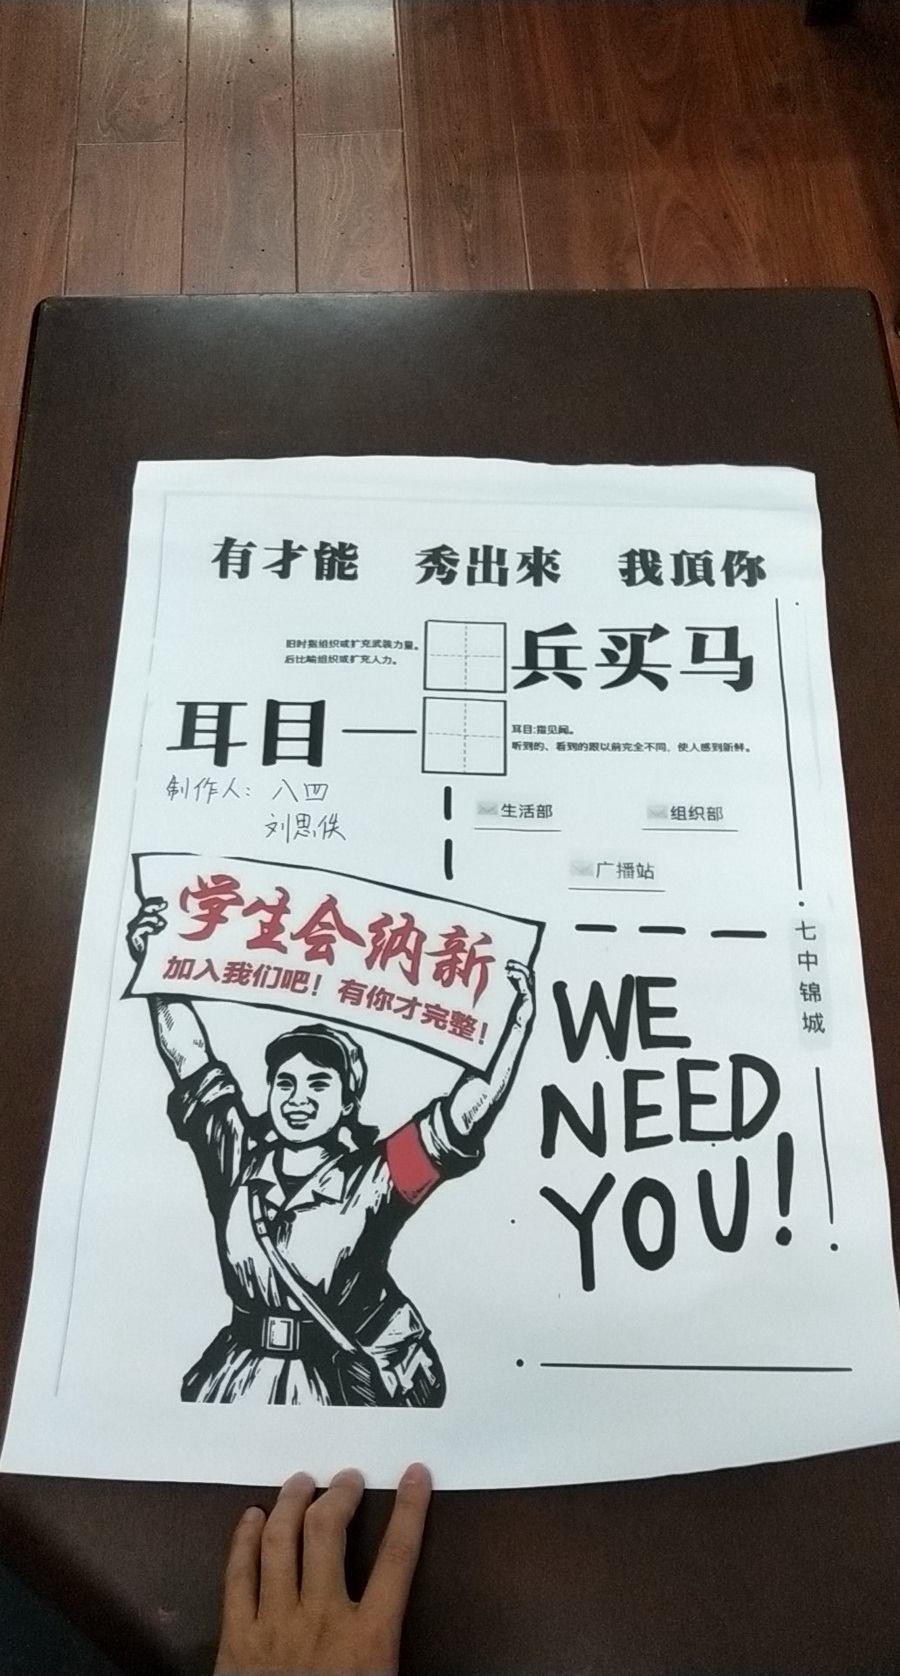 有才能 秀出來 我頂你
旧时指组织或扩充武装力量。
后比喻组织或扩充人力。
兵买马
耳目一
耳目:指见闻。
听到的、看到的跟以前完全不同，使人感到新鲜。
制作人：八四
刘思佚
生活部
组织部
广播站
学生会纳新
加入我们吧！有你才完整！
七中锦城
WE
NEED
YOU!